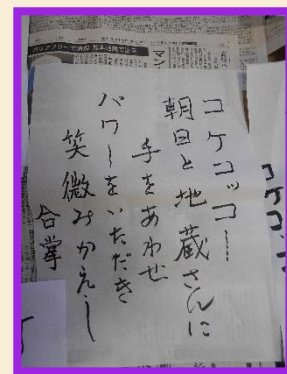 コケコッコー
朝日と地蔵さんに
手をあわせ
パワーをいただき
笑微みかえし
合掌